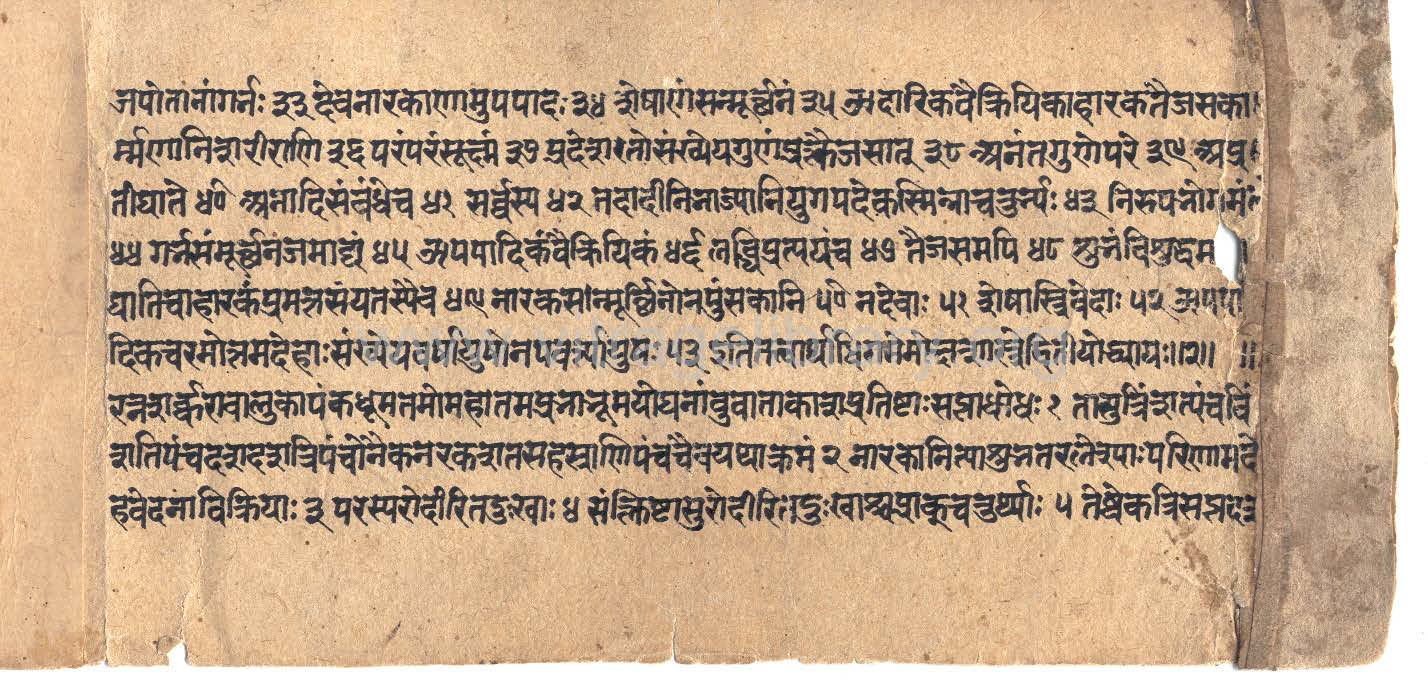 अपोतानांगर्भः ३३ देवनारकाणामुपपादः ३४ शेषाणांसन्मूर्छनं ३५ औदारिकवैक्रियिकाहारकतैजसका
र्म्मणानिशरीराणि ३६ परंपरंसूक्ष्मं ३७ प्रदेशतोसंख्येयगुणंप्राक्तैजसात् ३८ अनंतगुणेपरे ३९ अप्र
तीघाते ४० अनादिसंबंधेच ४१ सर्व्वस्य ४२ तदादीनिभाज्यानियुगपदेकस्मिन्नाचतुर्भ्यः ४३ निरुपभोगमंत्
४४ गर्भसंमूर्छनजमाद्यं ४५ औपपादिकंवैक्रियिकं ४६ लब्धिप्रत्ययंच ४७ तैजसमपि ४८ शुभंविशुद्धम
घातिचाहारकंप्रमत्तसंयतस्यैव ४९ नारकसन्मूर्छिनोनपुंसकानि ५० नदेवाः ५१ शेषास्त्रिवेदाः ५२ औपपा
दिकचरमोत्तमदेहाःसंख्येयवर्षायुषोनपवर्त्यायुषः ५३ इतितत्वार्थाधिगमेमोक्षशास्त्रेद्वितीयोध्यायः॥२॥ ॥
रत्नशर्क्करावालुकापंकधूमतमोमहातमप्रभाभूमयोघनांबुवाताकाशप्रतिष्टाःसप्ताधोधः १ तासुत्रिंशत्पंचविं
शतिपंचदशदशत्रिपंचोनैकनरकशतसहस्राणिपंचचैवयथाक्रमं २ नारकानित्याशुभतरलेश्यापरिणामदे
हवेदनाविक्रियाः ३ परस्परोदीरितदुःखाः ४ संक्लिष्टासुरोदीरितदुःखाश्चप्राक्चतुर्थ्याः ५ तेष्वेकत्रिसप्तदश
www.vitragelibrary.org